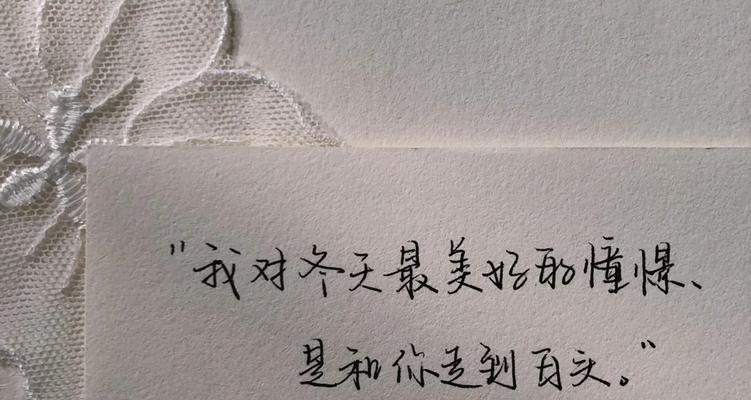 "我对冬天最美好的憧憬、
是和你走到百头。"